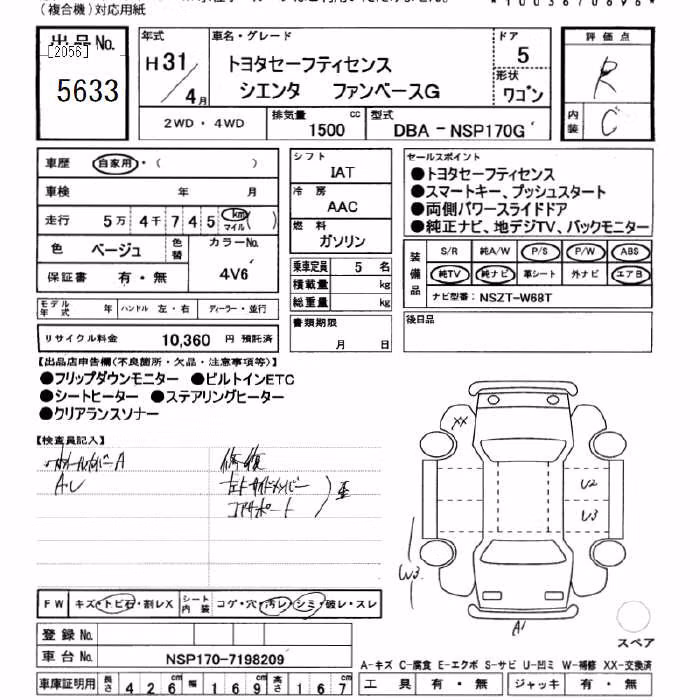 (複合機)対応用紙
*1003670696*
出品No.
[2056]
5633
年式
H31/4月
車名・グレード
トヨタセーフティセンス
シエンタ ファンベースG
ドア
5
形状
ワゴン
評価点
R
内装
C
2WD・4WD
排気量
1500 cc
型式
DBA-NSP170G
車歴 自家用・( )
車検 年 月
走行 5万4千745 km マイル ( )
色 ベージュ 色替 カラーNo. 4V6
保証書 有・無
シフト
IAT
冷房
AAC
燃料
ガソリン
乗車定員 5 名
積載量 kg
総重量 kg
セールスポイント
●トヨタセーフティセンス
●スマートキー、プッシュスタート
●両側パワースライドドア
●純正ナビ、地デジTV、バックモニター
装備品
S/R 純A/W P/S P/W ABS
純TV 純ナビ 革シート 外ナビ エアB
ナビ型番: NSZT-W68T
モデル年式 年 ハンドル 左・右 ディーラー・並行
リサイクル料金 10,360 円 預託済
書類期限
月 日
後日品
【出品店申告欄(不良箇所・欠品・注意事項等)】
●フリップダウンモニター ●ビルトインETC
●シートヒーター ●ステアリングヒーター
●クリアランスソナー
【検査員記入】
A・U
修復
左Fサイドメンバー
コアサポート
歪
XX
U2
U3
W3
A1
スペア
FW キズ・トビ石・割レX シート内装 コゲ・穴・汚レ・シミ・破レ・スレ
登録No.
車台No. NSP170-7198209
車庫証明用 長さ 426cm 幅 169cm 高さ 167cm
A-キズ C-腐食 E-エクボ S-サビ U-凹ミ W-補修 XX-交換済
工具 有・無 ジャッキ 有・無